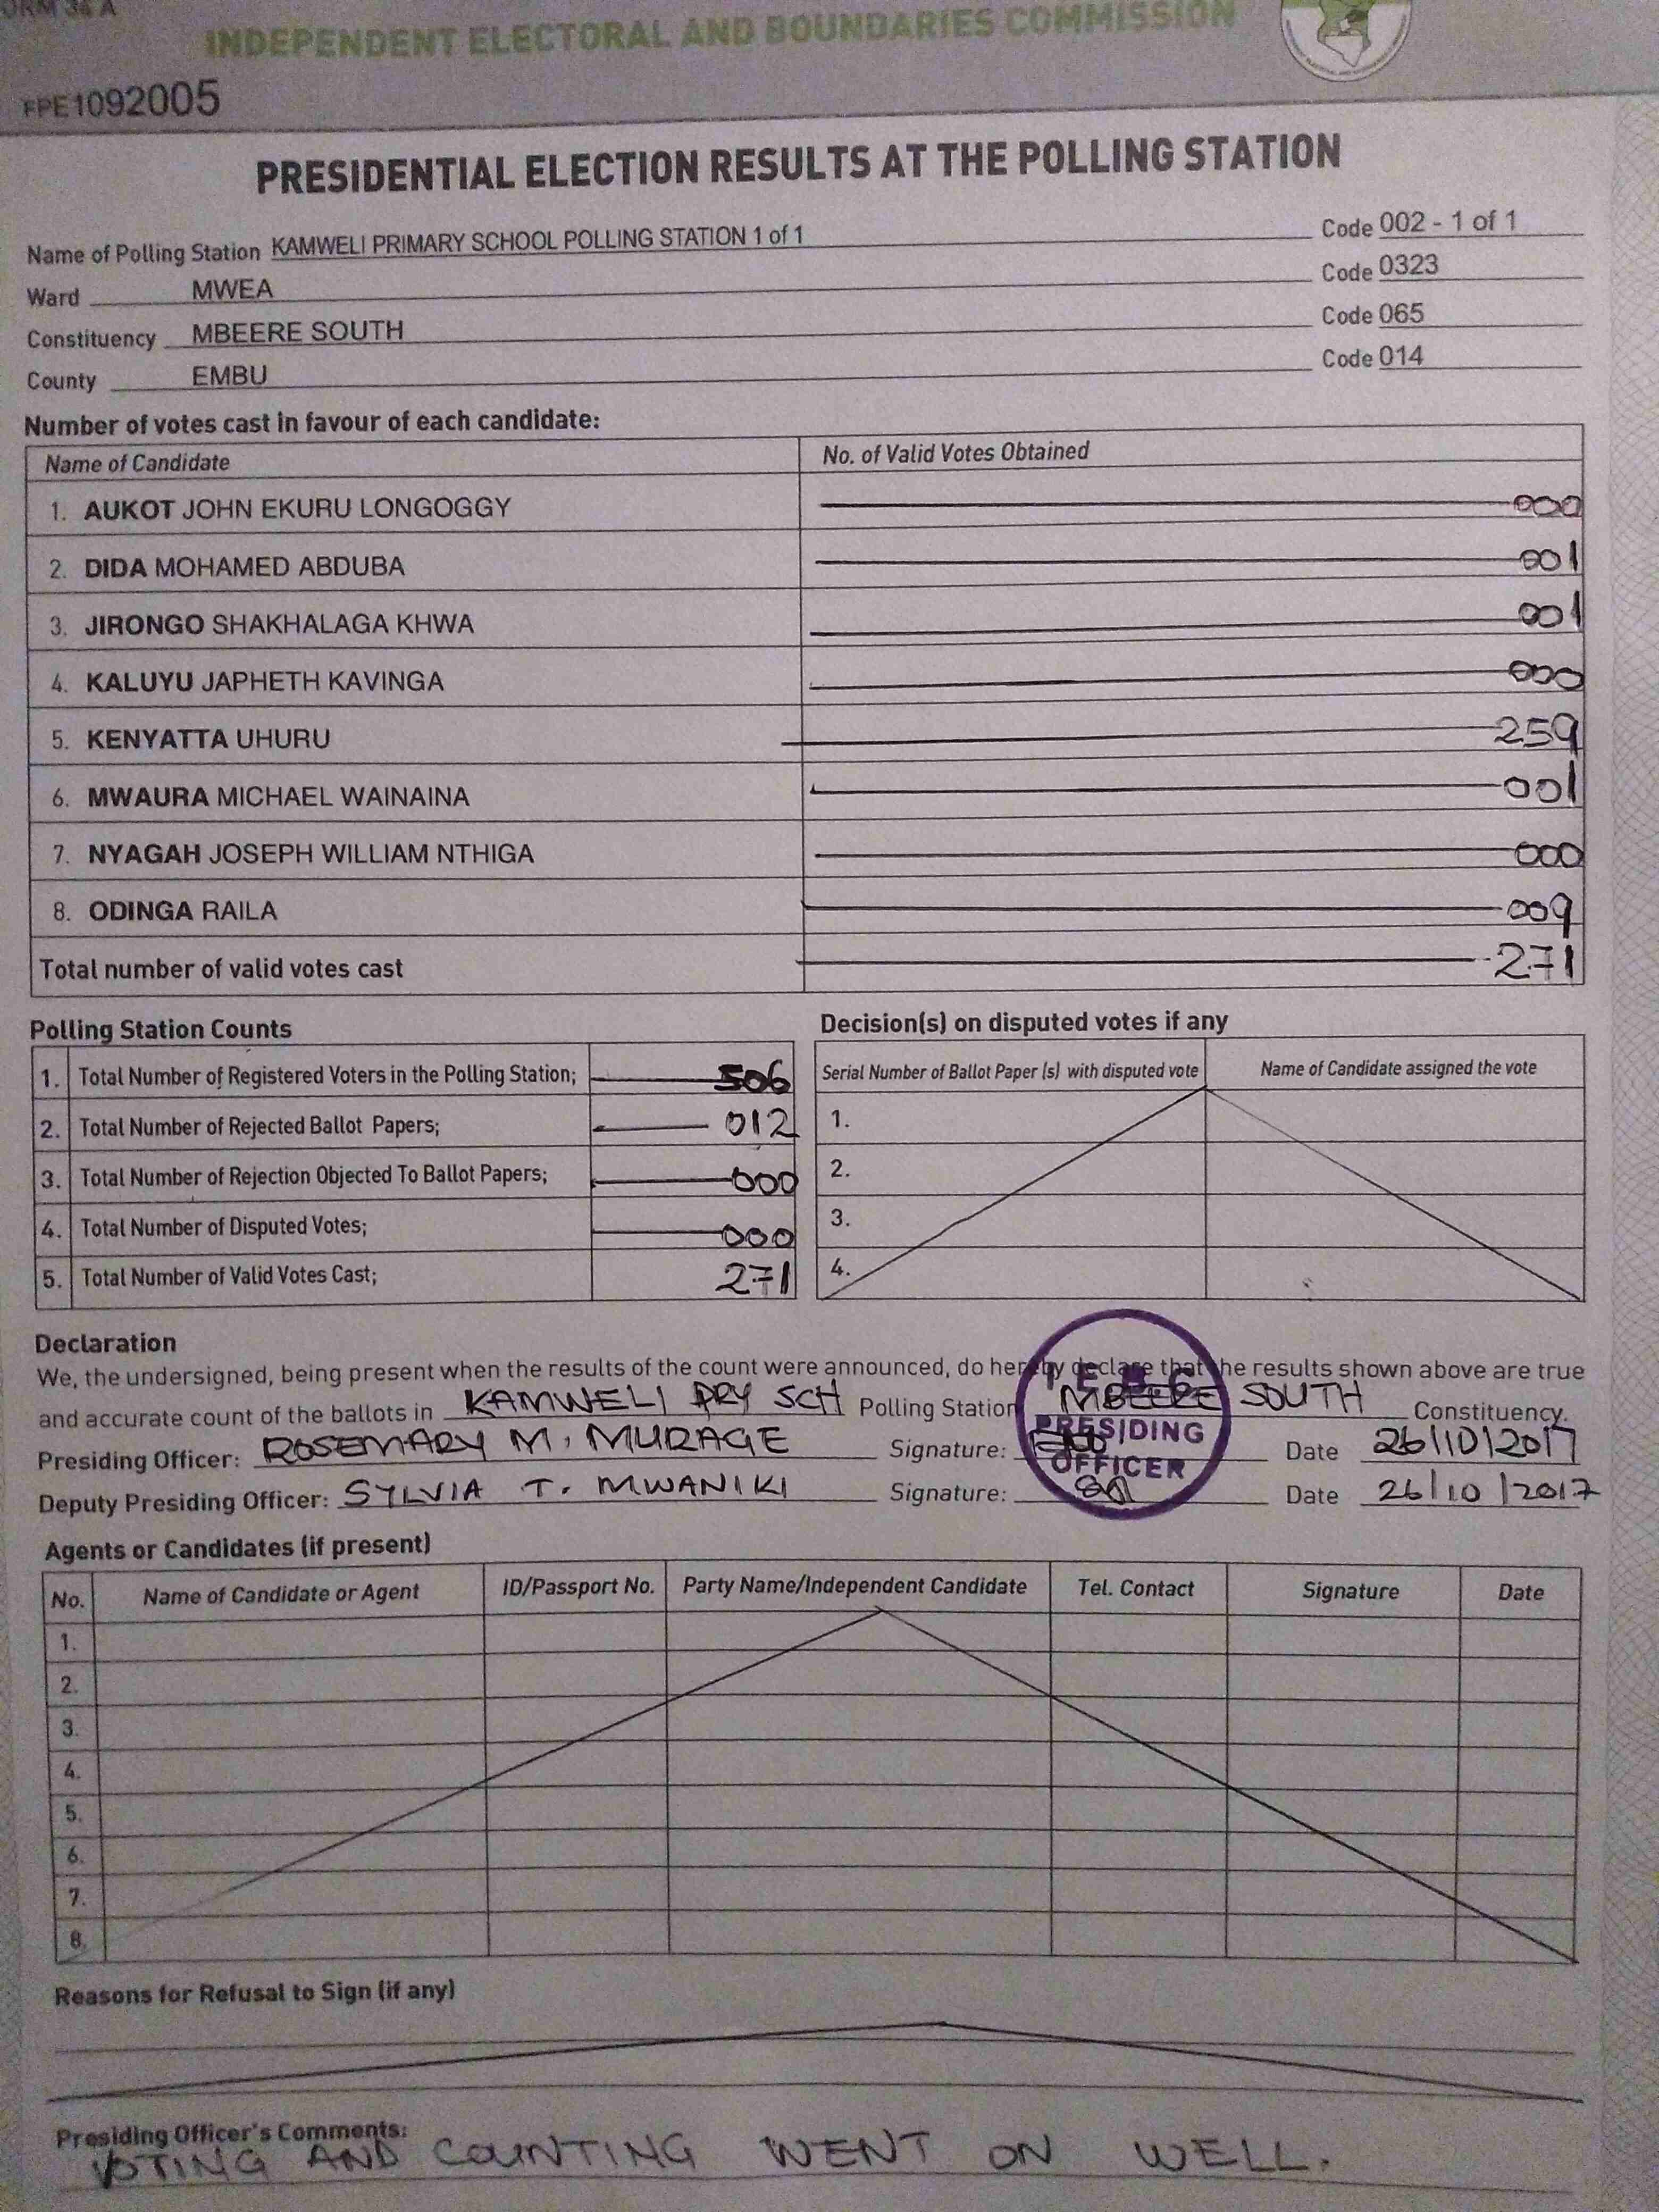 FORM 34 A
INDEPENDENT ELECTORAL AND BOUNDARIES COMMISSION
FPE1092005
PRESIDENTIAL ELECTION RESULTS AT THE POLLING STATION
Name of Polling Station KAMWELI PRIMARY SCHOOL POLLING STATION 1 of 1 Code 002 - 1 of 1
Ward MWEA Code 0323
Constituency MBEERE SOUTH Code 065
County EMBU Code 014
Number of votes cast in favour of each candidate:
Name of Candidate No. of Valid Votes Obtained
1. AUKOT JOHN EKURU LONGOGGY 000
2. DIDA MOHAMED ABDUBA 001
3. JIRONGO SHAKHALAGA KHWA 001
4. KALUYU JAPHETH KAVINGA 000
5. KENYATTA UHURU 259
6. MWAURA MICHAEL WAINAINA 001
7. NYAGAH JOSEPH WILLIAM NTHIGA 000
8. ODINGA RAILA 009
Total number of valid votes cast 271
Polling Station Counts
1. Total Number of Registered Voters in the Polling Station; 506
2. Total Number of Rejected Ballot Papers; 012
3. Total Number of Rejection Objected To Ballot Papers; 000
4. Total Number of Disputed Votes; 000
5. Total Number of Valid Votes Cast; 271
Decision(s) on disputed votes if any
Serial Number of Ballot Paper (s) with disputed vote Name of Candidate assigned the vote
1.
2.
3.
4.
Declaration
We, the undersigned, being present when the results of the count were announced, do hereby declare that the results shown above are true
and accurate count of the ballots in KAMWELI PRY SCH Polling Station MBEERE SOUTH Constituency.
Presiding Officer: ROSEMARY M. MURAGE Signature: Date 26/10/2017
Deputy Presiding Officer: SYLVIA T. MWANIKI Signature: Date 26/10/2017
PRESIDING
OFFICER
Agents or Candidates (if present)
No. Name of Candidate or Agent ID/Passport No. Party Name/Independent Candidate Tel. Contact Signature Date
1.
2.
3.
4.
5.
6.
7.
8.
Reasons for Refusal to Sign (if any)
Presiding Officer's Comments:
VOTING AND COUNTING WENT ON WELL.